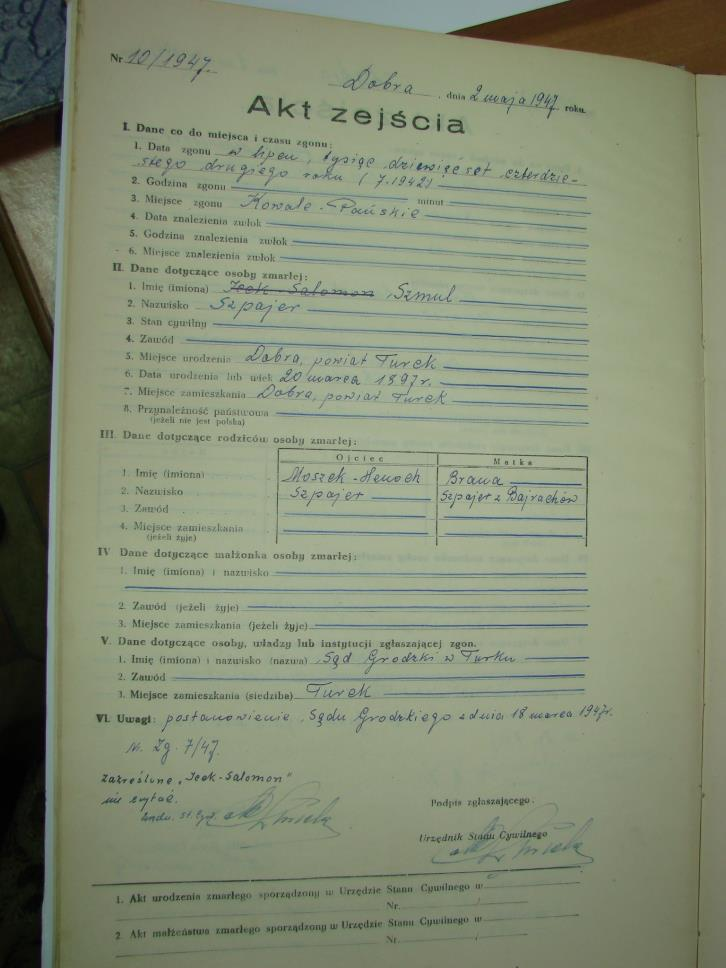 Nr 10/1947.
Dobra, dnia 2 maja 1947 roku.
Akt zejścia
I. Dane co do miejsca i czasu zgonu:
1. Data zgonu w lipcu, tysiąc dziewięćset czterdzie-
stego drugiego roku (7.1942)
2. Godzina zgonu minut
3. Miejsce zgonu Kowale-Pańskie
4. Data znalezienia zwłok
5. Godzina znalezienia zwłok
6. Miejsce znalezienia zwłok
II. Dane dotyczące osoby zmarłej:
1. Imię (imiona) Icek-Salomon, Szmul
2. Nazwisko Szpajer
3. Stan cywilny
4. Zawód
5. Miejsce urodzenia Dobra, powiat Turek
6. Data urodzenia lub wiek 20 marca 1897 r.
7. Miejsce zamieszkania Dobra, powiat Turek
8. Przynależność państwowa
(jeżeli nie jest polska)
III. Dane dotyczące rodziców osoby zmarłej:
Ojciec Matka
1. Imię (imiona) Moszek-Henoch Brana
2. Nazwisko Szpajer Szpajer z Bajrachów
3. Zawód
4. Miejsce zamieszkania
(jeżeli żyje)
IV Dane dotyczące małżonka osoby zmarłej:
1. Imię (imiona) i nazwisko
2. Zawód (jeżeli żyje)
3. Miejsce zamieszkania (jeżeli żyje)
V. Dane dotyczące osoby, władzy lub instytucji zgłaszającej zgon.
1. Imię (imiona) i nazwisko (nazwa) Sąd Grodzki w Turku
2. Zawód
3. Miejsce zamieszkania (siedziba) Turek
VI. Uwagi: postanowienie Sądu Grodzkiego z dnia 18 marca 1947r.
N. Zg. 7/47.
Zakreślone „Icek-Salomon"
nie czytać.
Podpis zgłaszającego.
Urzędnik Stanu Cywilnego
1. Akt urodzenia zmarłego sporządzony w Urzędzie Stanu Cywilnego w
Nr.
2. Akt małżeństwa zmarłego sporządzony w Urzędzie Stanu Cywilnego w
Nr.